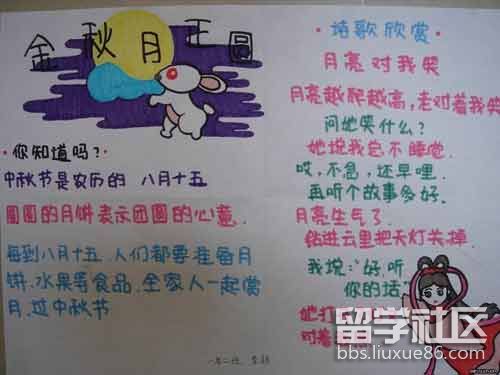 金秋月正圆
·你知道吗?·
中秋节是农历的 八月十五
圆圆的月饼表示团圆的心意.
每到八月十五.人们都要准备月
饼.水果等食品.全家人一起赏
月.过中秋节
诗歌欣赏
月亮对我笑
月亮越爬越高,老对着我笑
问她笑什么?
她说我总不睡觉.
哎,不急,还早哩.
再听个故事多好.
月亮生气了.
钻进云里把天灯关掉.
我说:"好,听
你的话
她打
对着
留学社区
bbs.liuxue86.com